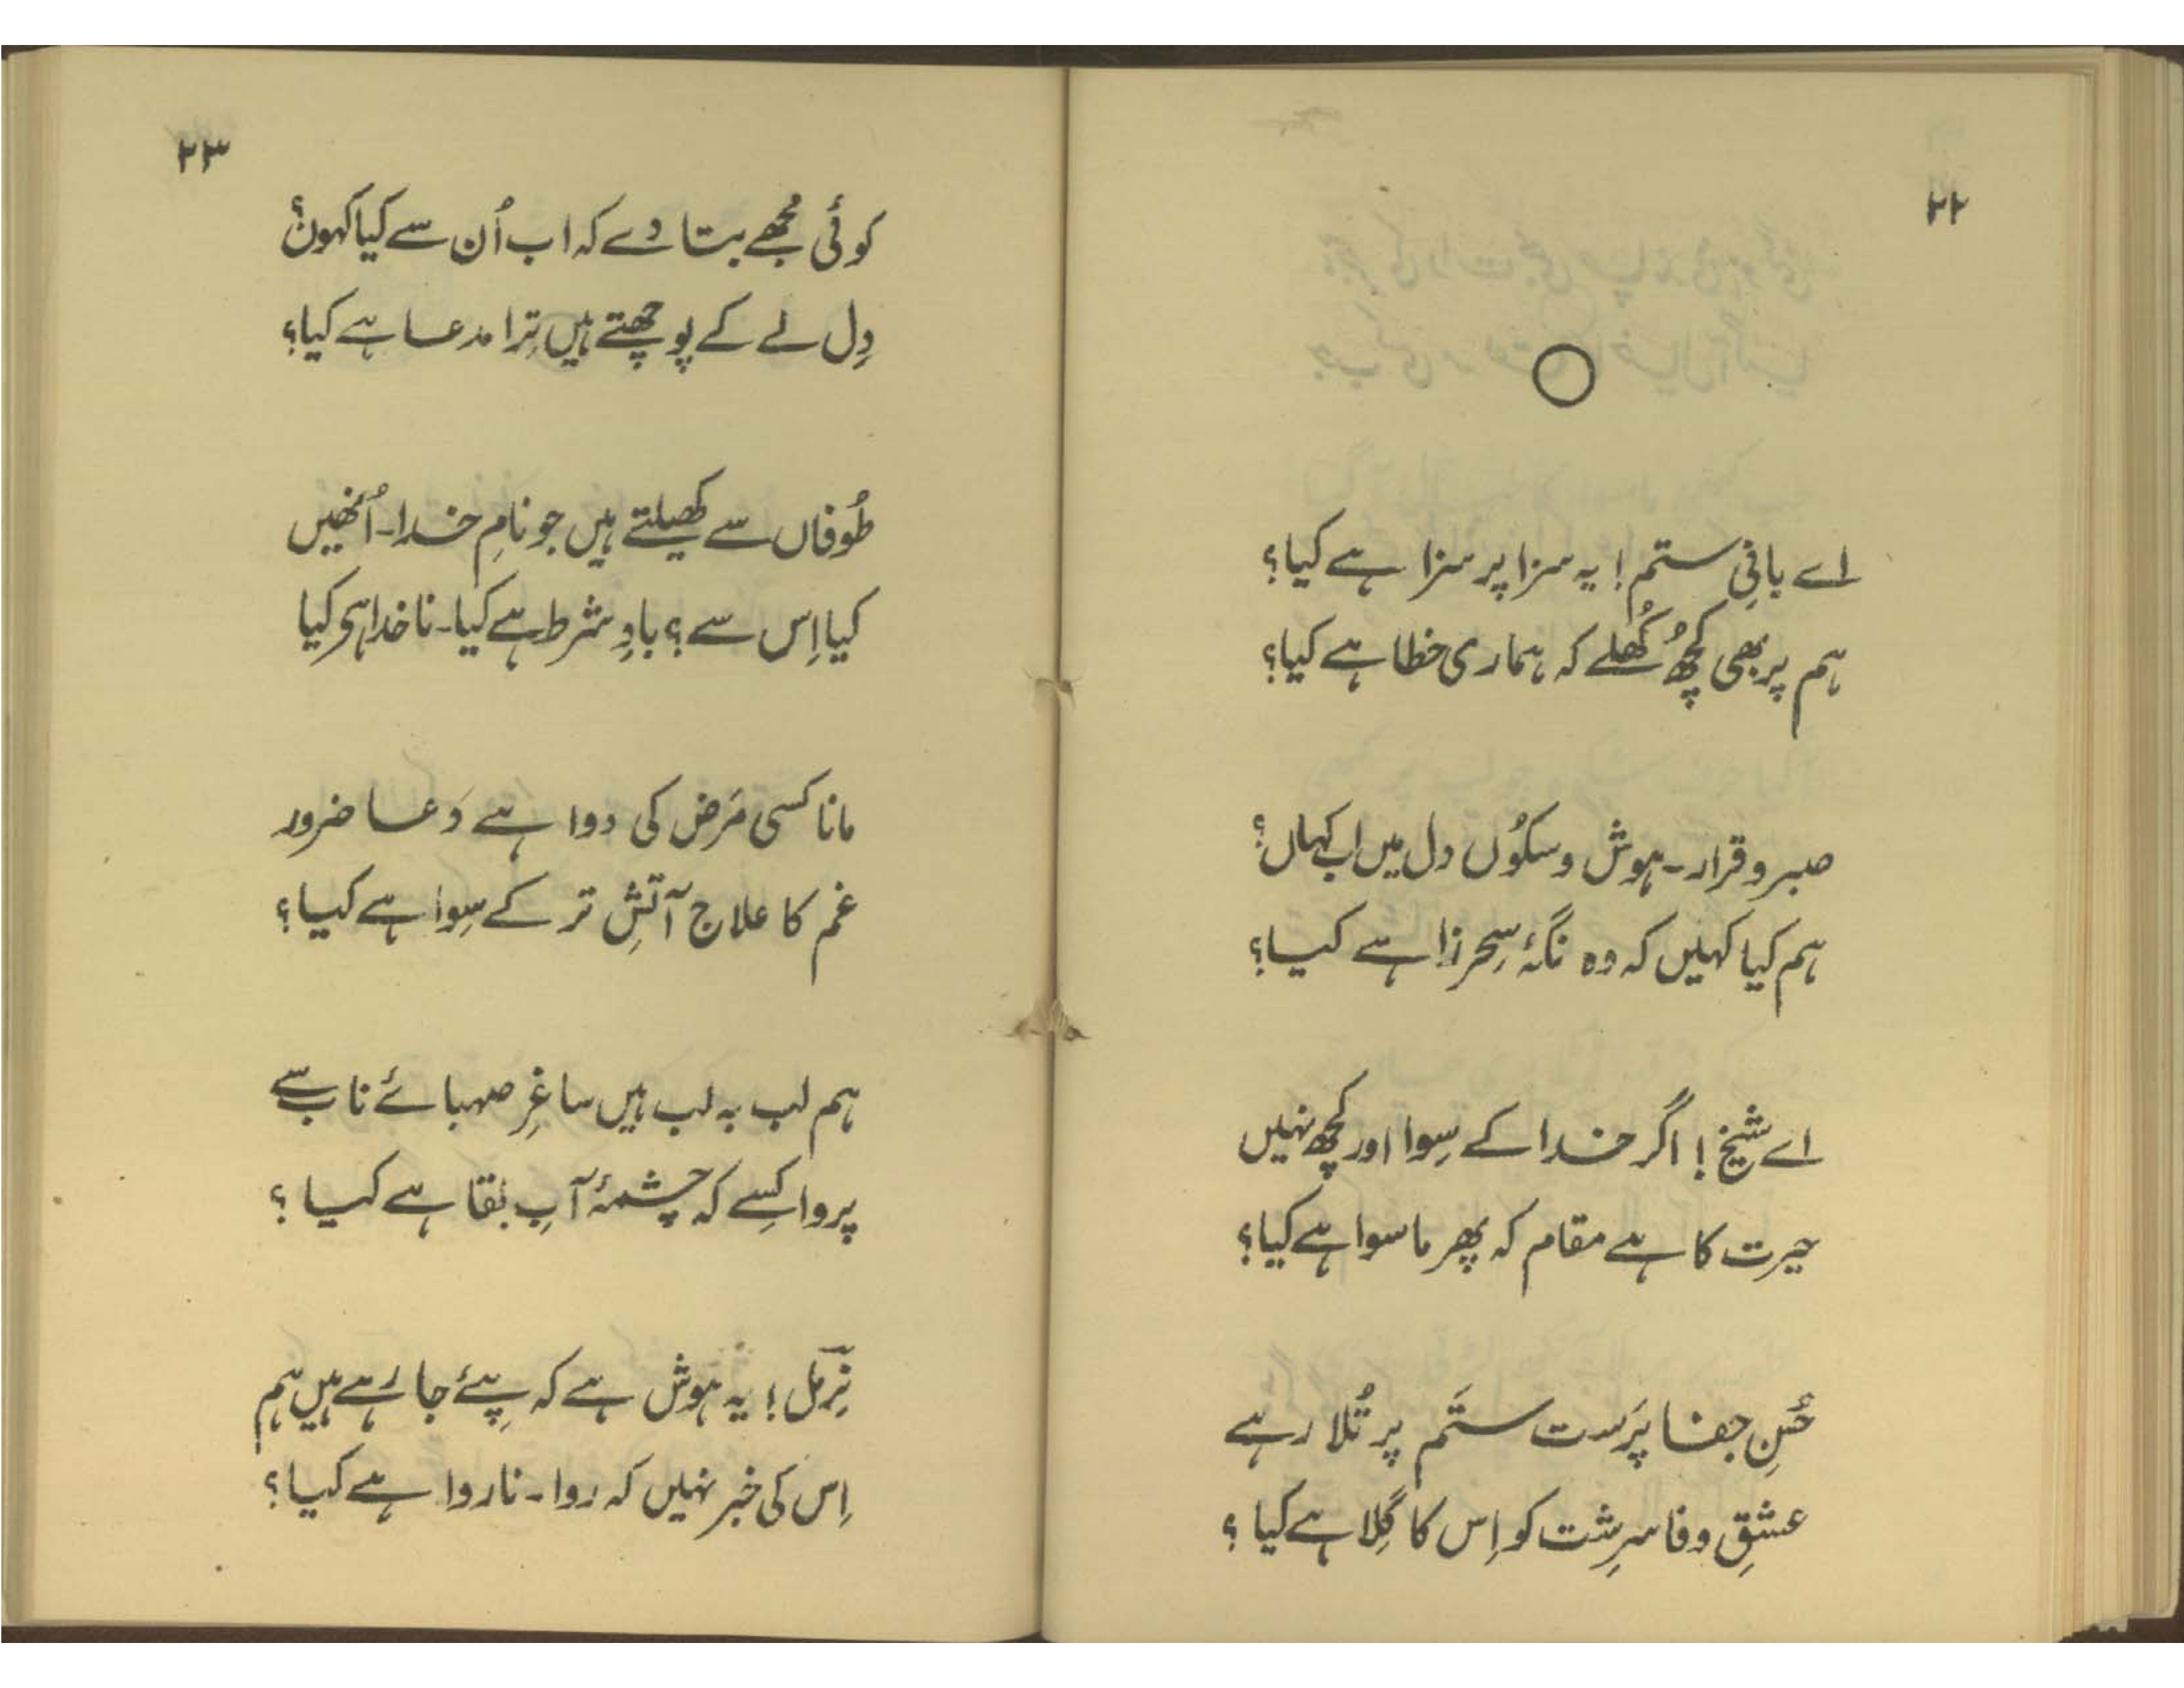 ۲۲
اے بانیِ ستم! یہ سزا پر سزا ہے کیا؟
ہم پر بھی کچھ کُھلے کہ ہماری خطا ہے کیا؟
صبر و قرار۔ ہوش و سکوُں دل میں اب کہاں؟
ہم کیا کہیں کہ وہ نگۂ سِحر زا ہے کیا؟
اے شیخ! اگر خدا کے سِوا اور کچھ نہیں
حیرت کا ہے مقام کہ پھر ماسوا ہے کیا؟
حُسنِ جفا پَرست ستَم پر تُلا رہے
عشقِ وفا سرِشت کو اِس کا گِلا ہے کیا ؟
۲۳
کوئی مُجھے بتا دے کہ اب اُن سے کیا کہوں؟
دِل لے کے پوچھتے ہیں تِرا مدعا ہے کیا؟
طُوفاں سے کھیلتے ہیں جو نامِ خدا۔ اُنھیں
کیا اِس سے؟ بادِ شرط ہے کیا۔ ناخدا ہی کیا
مانا کسی مَرض کی دوا ہے دعا ضرور
غم کا علاج آتشِ تر کے سِوا ہے کیا؟
ہم لب بہ لب ہیں ساغرِ صہبائے ناب سے
پروا کِسے کہ چشمۂ آبِ بقا ہے کیا ؟
نِرمل! یہ ہوش ہے کہ پِئے جا رہے ہیں ہم
اِس کی خبر نہیں کہ روا۔ ناروا ہے کیا؟